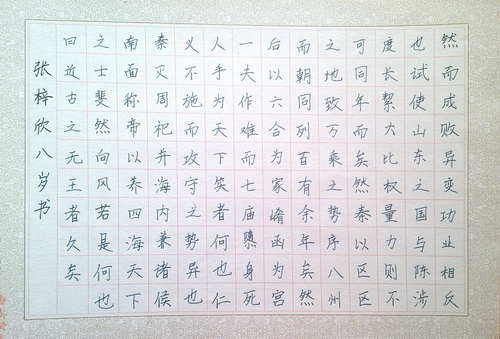 然而成败异变功业相反
也试使山东之国与陈涉
度长絜大比权量力则不
可同年而矣然秦以区区
之地致万乘之势序八州
而朝同列百有余年矣然
后以六合为家崤函为宫
一夫作难而七庙隳身死
人手为天下笑者何也仁
义不施而攻守之势异也
秦灭周祀并海内兼诸侯
南面称帝以养四海天下
之士斐然向风若是何也
曰近古之无王者久矣
张梓欣八岁书